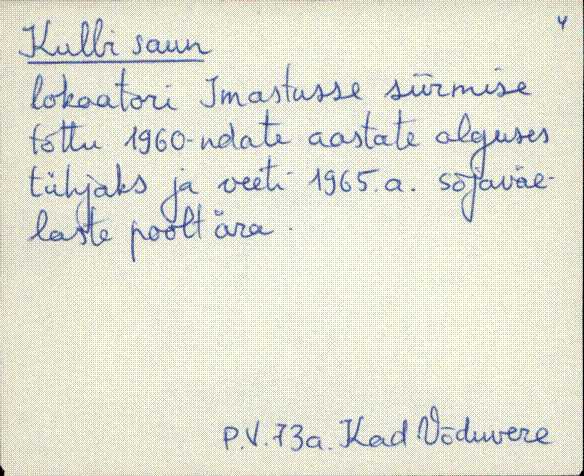 4
Kulbi saun
lokaatori Imastusse siirmise
tõttu 1960-ndate aastate alguses
tühjaks ja veeti 1965.a. sõjaväe-
laste poolt ära.
P.V. 73a. Kad Võduvere